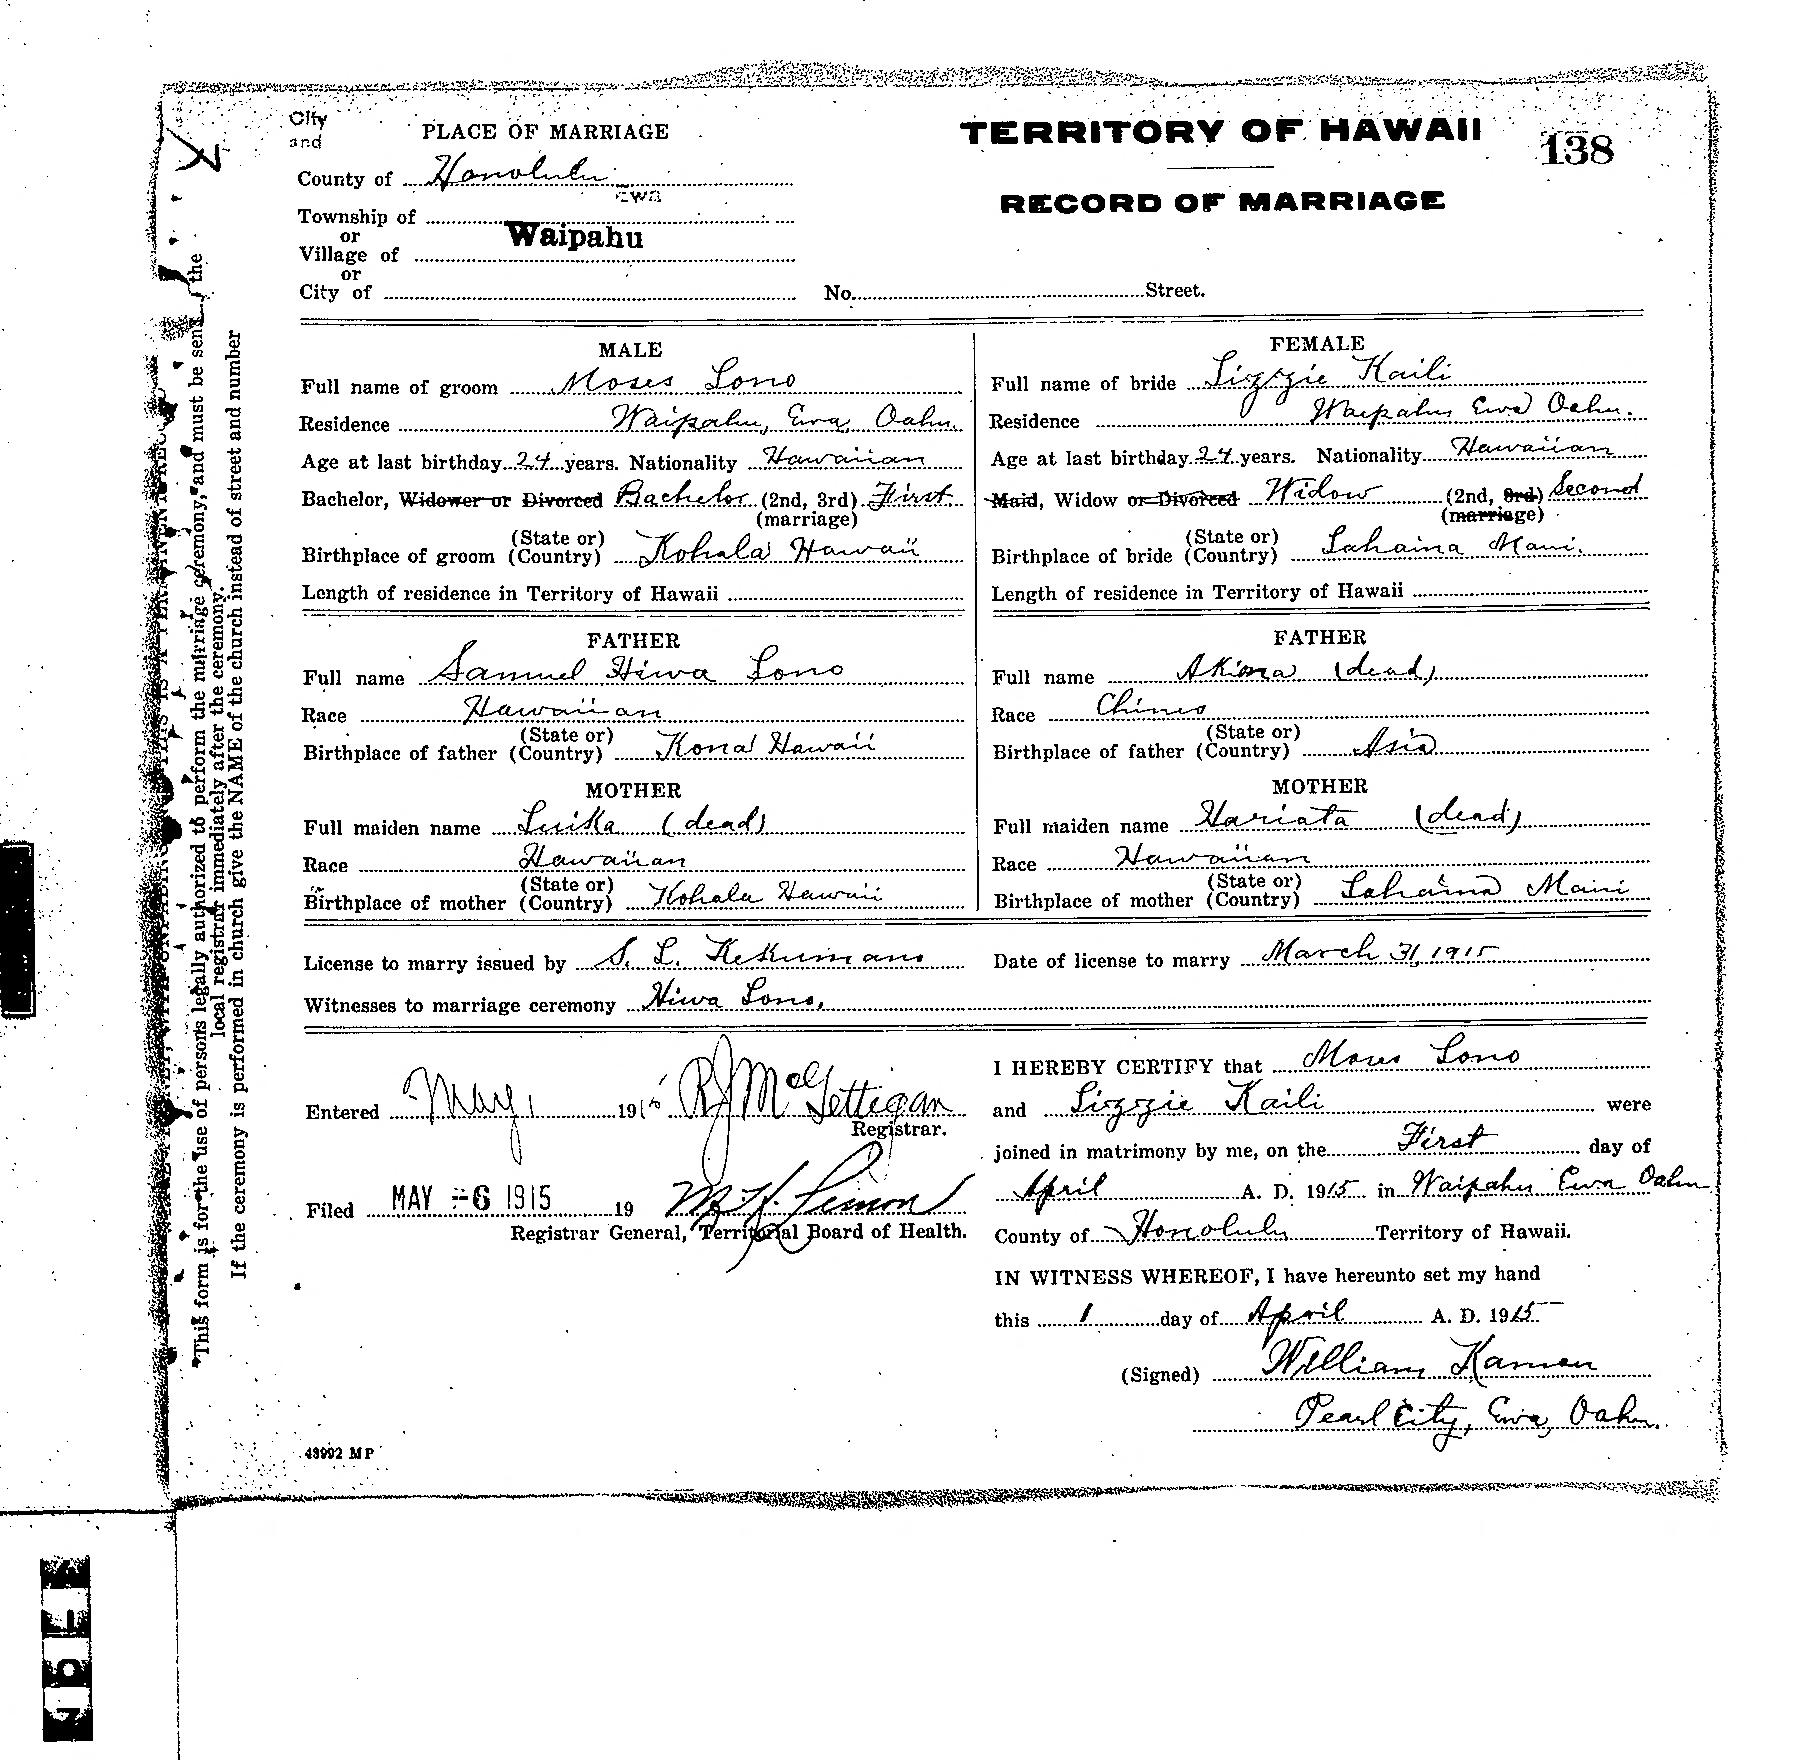 City
and
PLACE OF MARRIAGE
County of Honolulu
Ewa
Township of
or
Waipahu
Village of
or
City of No. Street.
TERRITORY OF HAWAII
138
RECORD OF MARRIAGE
MALE
Full name of groom Moses Lono
Residence Waipahu, Ewa, Oahu.
Age at last birthday 24 years. Nationality Hawaiian
Bachelor, Widower or Divorced Bachelor (2nd, 3rd) First
(marriage)
(State or)
Birthplace of groom (Country) Kohala Hawaii
Length of residence in Territory of Hawaii
FATHER
Full name Samuel Hiwa Lono
Race Hawaiian
(State or)
Birthplace of father (Country) Kona Hawaii
MOTHER
Full maiden name Luika (dead)
Race Hawaiian
(State or)
Birthplace of mother (Country) Kohala Hawaii
FEMALE
Full name of bride Lizzie Kaili
Residence Waipahu Ewa Oahu.
Age at last birthday 24 years. Nationality Hawaiian
Maid, Widow or Divorced Widow (2nd, 3rd) Second
(marriage)
(State or)
Birthplace of bride (Country) Lahaina Maui.
Length of residence in Territory of Hawaii
FATHER
Full name Akima (dead)
Race Chines
(State or)
Birthplace of father (Country) Asia
MOTHER
Full maiden name Hariata (dead)
Race Hawaiian
(State or)
Birthplace of mother (Country) Lahaina Maui
License to marry issued by S. L. Kekumano Date of license to marry March 31, 1915
Witnesses to marriage ceremony Hiwa Lono,
Entered May, 1915 RJ McGettigan
Registrar.
Filed MAY -6 1915 19
Registrar General, Territorial Board of Health.
I HEREBY CERTIFY that Moses Lono
and Lizzie Kaili were
joined in matrimony by me, on the First day of
April A. D. 1915 in Waipahu Ewa Oahu
County of Honolulu Territory of Hawaii.
IN WITNESS WHEREOF, I have hereunto set my hand
this 1 day of April A. D. 1915
(Signed) William Kamau
Pearl City, Ewa, Oahu.
43992 M P
This form is for the use of persons legally authorized to perform the marriage ceremony, and must be sent the
local registrar immediately after the ceremony.
If the ceremony is performed in church give the NAME of the church instead of street and number